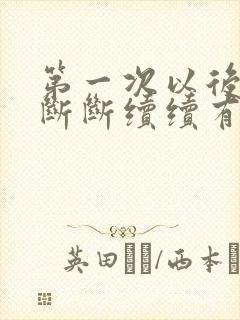 第一次以後
斷斷續續有
英田/西本